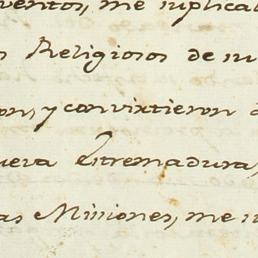 ventos, me suplica
s Religiosos de su
on, y convirtieron a
ueva Estremadura,
as Missiones, me